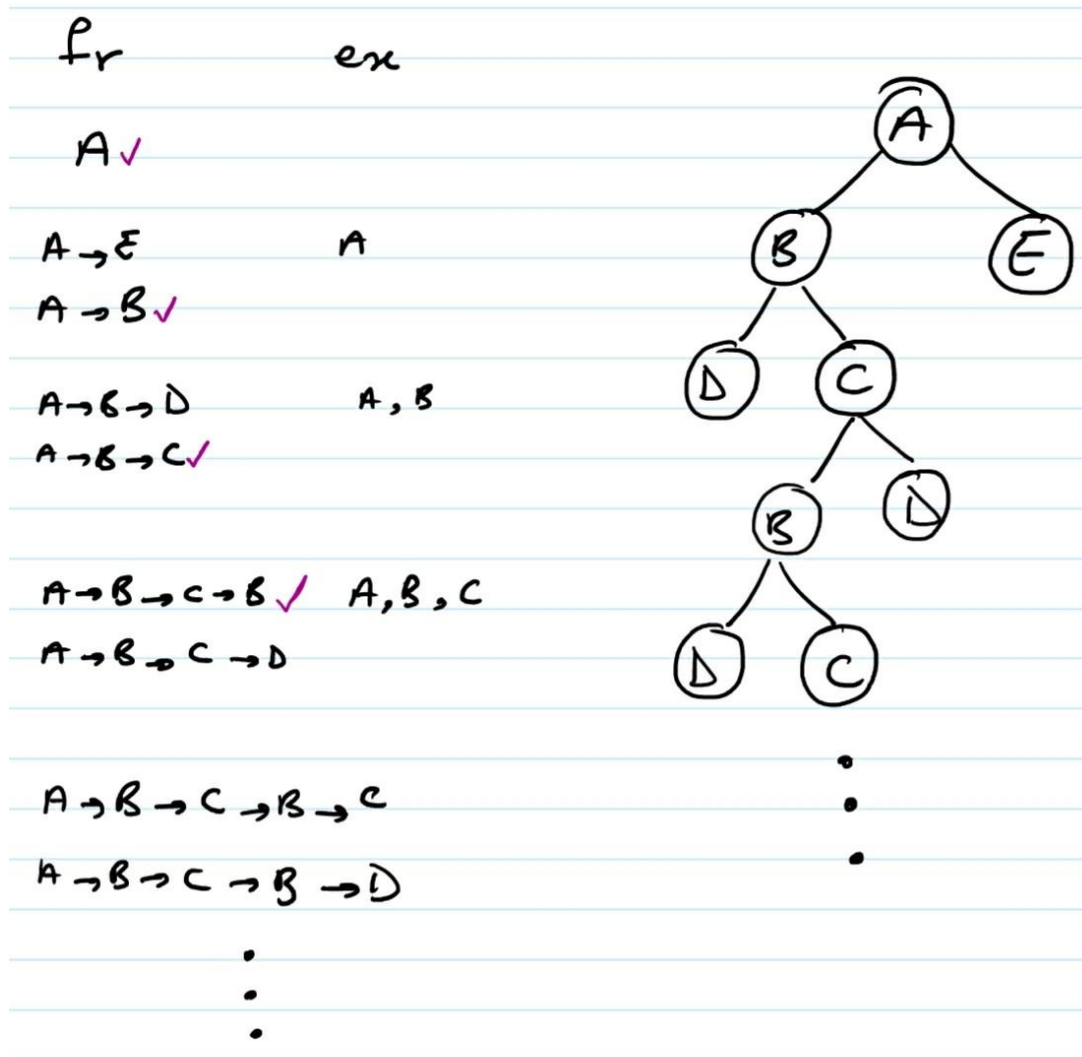 fr ex
A ✓
A → E A
A → B ✓
A → B → D A, B
A → B → C ✓
A → B → C → B ✓ A, B, C
A → B → C → D
A → B → C → B → C
A → B → C → B → D
A
B E
D C
B D
D C